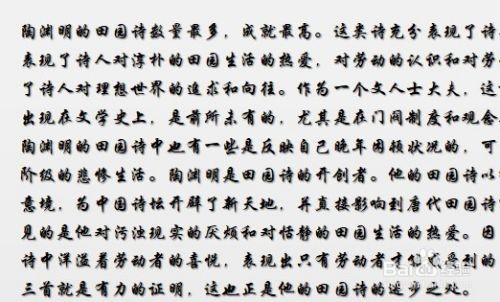 陶渊明的田园诗数量最多，成就最高。这类诗充分表现了诗
表现了诗人对淳朴的田园生活的热爱，对劳动的认识和对劳
了诗人对理想世界的追求和向往。作为一个文人士大夫，这
出现在文学史上，是前所未有的，尤其是在门阀制度和观念
陶渊明的田园诗中也有一些是反映自己晚年困顿状况的，可
阶级的悲惨生活。陶渊明是田园诗的开创者。他的田园诗以
意境，为中国诗坛开辟了新天地，并直接影响到唐代田园诗
见的是他对污浊现实的厌烦和对恬静的田园生活的热爱。因
诗中洋溢着劳动者的喜悦，表现出只有劳动者才能感受到的
三首就是有力的证明，这也正是他的田园诗的进步之处。